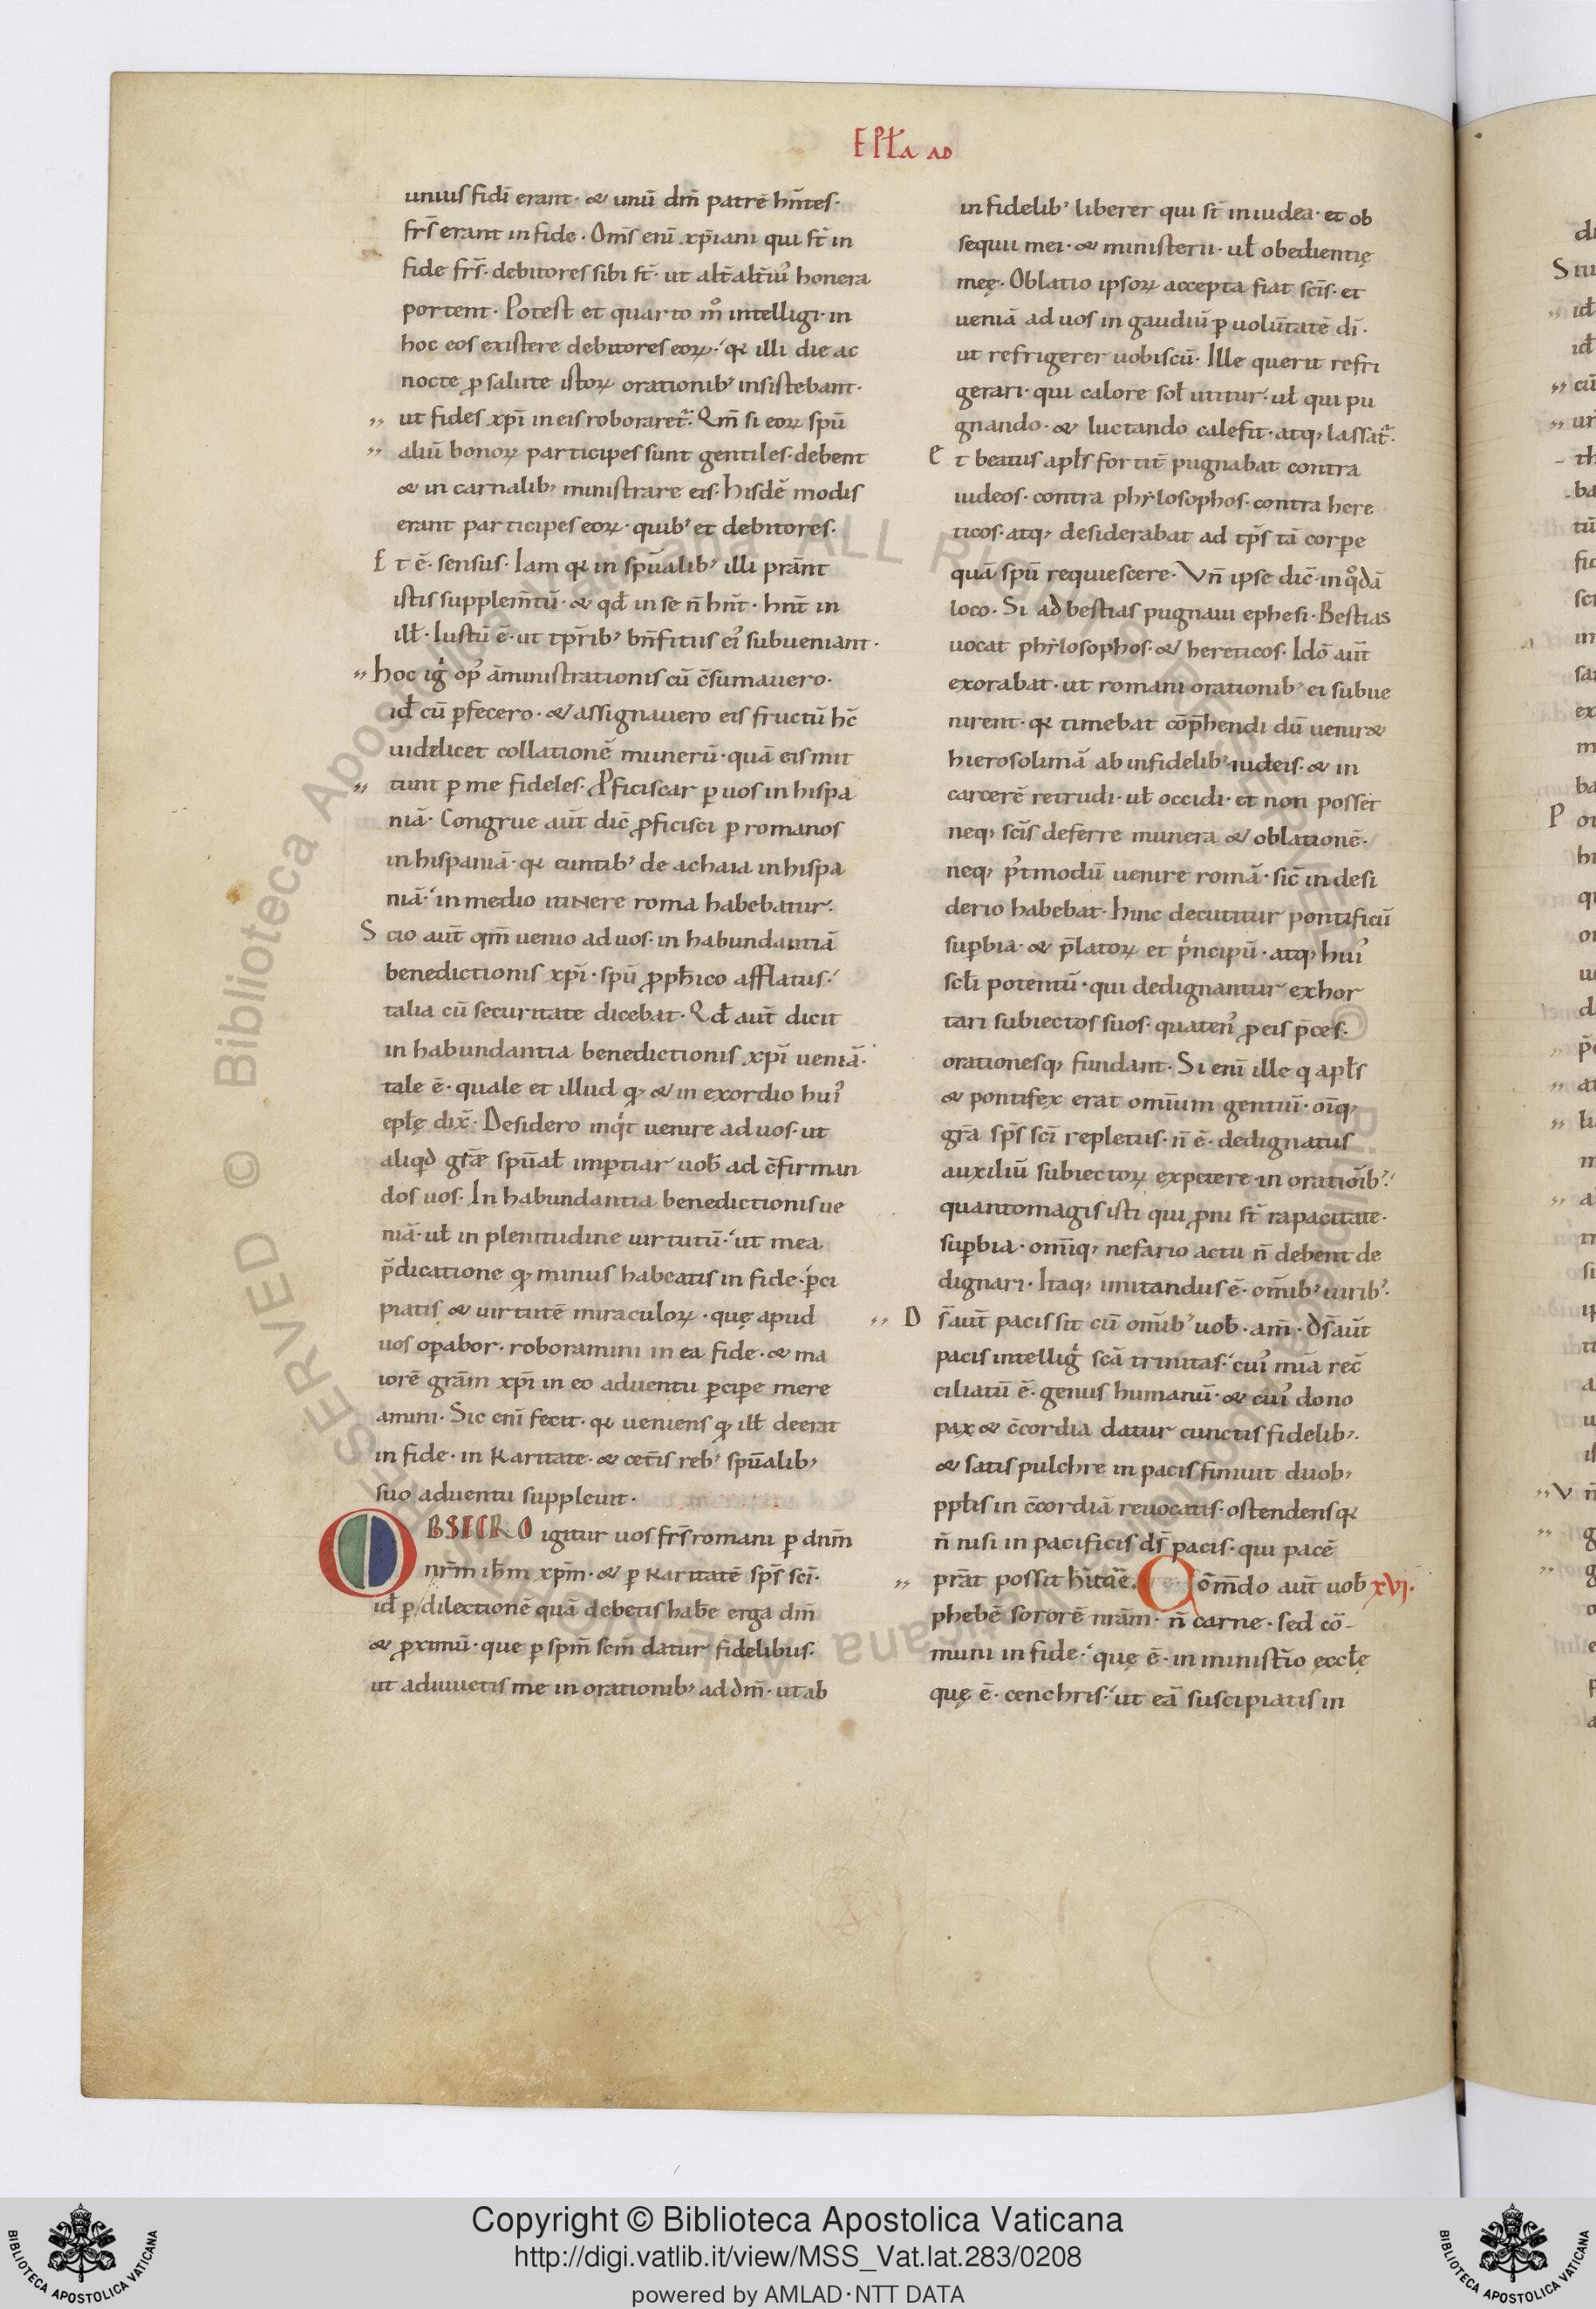 EPŁa AD
unius fidī erant· & unū dm̄ patrē hn̄tes·
frs̄ erant in fide· Om̄s enī xp̄iani qui st̄ in
fide frs̄· debitores sibi st̄· ut alt̄ alt̄iuꝰ honera
portent· Potest et quarto mͦ intelligi· in
hoc eos existere debitores eoꝝ· qꝛ illi die ac
nocte ꝓ salute istoꝝ orationibꝰ insistebant·
ut fides xp̄i in eis roboraret᷑· Qm̄ si eoꝝ spū
aliū bonoꝝ participes sunt gentiles· debent
& in carnalibꝰ ministrare eis· hisdē modis
erant participes eoꝝ· quibꝰ et debitores·
Et ē· sensus· Iam qꝛ in spūalibꝰ illi prānt
istis supplem̄tū· & qd̄ in se n̄ hn̄t· hn̄t in
ill̄· Iustū ē· ut tp̄ribꝰ bn̄fitiis eiꝰ subueniant·
hoc ig̍ opꝰ ām̄inistrationis cū c̄sumauero·
id̄ cū ꝑfecero· & assignauero eis fructū hc̄
uidelicet collationē munerū· quā eis mit
tunt ꝑ me fideles· Ꝓficiscar ꝑ uos in hispa
niā· Congrue aut̄ dic̄ ꝓficisci ꝑ romanos
in hispaniā· qꝛ euntibꝰ de achaia in hispa
niā· in medio itinere roma habebatur·
Scio aut̄ qm̄ uenio ad uos· in habundantiā
benedictionis xp̄i· spū ꝓph̄ico afflatus·
talia cū securitate dicebat· Qd̄ aut̄ dicit
in habundantia benedictionis xp̄i ueniā·
tale ē· quale et illud qꝫ & in exordio huiꝰ
epłę dix̄· Desidero inq̍t uenire ad uos· ut
aliqd̄ gr̄æ spūał imꝑtiar uob̄ ad c̄firman
dos uos· In habundantia benedictionis ue
niā· uł in plenitudine uirtutū· ut mea
p̄dicatione qꝫ minus habeatis in fide· ꝑci
piatis & uirtutē miraculoꝝ· quę apud
uos oꝑabor· roboramini in ea fide· & ma
iorē grām xp̄i in eo aduentu ꝑcipe mere
amini· Sic enī fecit· qꝛ ueniens qꝫ ill̄ deerat
in fide· in karitate· & cet̄is rebꝰ spūalibꝰ
suo aduentu suppleuit·
OBSECRO igitur uos frs̄ romani ꝑ dnm̄
nr̄m ih̄m xp̄m· & ꝑ karitatē sp̄s sc̄i·
id̄ ꝑ dilectionē quā debetis hab̄e erga dm̄
& ꝓximū· que ꝑ spm̄ scm̄ datur fidelibus·
ut adiuuetis me in orationibꝰ ad dm̄· ut ab
infidelibꝰ liberer qui st̄ in iudea· et ob
sequii mei· & ministerii· uł obedientię
meę· Oblatio ipsoꝝ accepta fiat sc̄is· et
ueniā ad uos in gaudiū ꝑ uolūtatē dī·
ut refrigerer uobiscū· Ille querit refri
gerari· qui calore soł utitur· uł qui pu
gnando· & luctando calefit· atqꝫ lassat᷑·
Et beatus apłs fortit̄ pugnabat contra
iudeos· contra phẏlosophos· contra here
ticos· atqꝫ desiderabat ad tp̄s tā corꝑe
quā spū requiescere· Vn̄ ipse dic̄· in qͦdā
loco· Si ad bestias pugnaui ephesi· Bestias
uocat phẏlosophos· & hereticos· Idō aut̄
exorabat· ut romani orationibꝰ ei subue
nirent· qꝛ timebat cōp̄hendi dū uenir&
hierosolimā ab infidelibꝰ iudeis· & in
carcerē retrudi· uł occidi· et non posset
neqꝫ sc̄is deferre munera & oblationē·
neqꝫ p̍tmodū uenire romā· sic̄ in desi
derio habebat· hinc decutitur pontificū
suꝑbia· & p̄latoꝝ et p̍ncipū· atqꝫ huiꝰ
scłi potentū· qui dedignantur exhor
tari subiectos suos· quatenꝰ ꝓ eis p̄ces·
orationesqꝫ fundant· Si enī ille q apłs
& pontifex erat omīum gentiū· oīq,
gr̄a sp̄s sc̄i repletus· n̄ ē· dedignatus
auxiliū subiectoꝝ expetere in oratiōibꝰ·
quantomagis isti qui ꝓni st̄ rapacitate·
suꝑbia· omīqꝫ nefario actu n̄ debent de
dignari· Itaqꝫ imitandus ē· om̄ibꝰ uiribꝰ·
Ds̄ aut̄ pacis sit cū om̄ibꝰ uob̄· am̄· ds̄ aut̄
pacis intellig̍ scā trinitas· cuiꝰ mīa rec̄
ciliatū ē· genus humanū· & cuiꝰ dono
pax & c̄cordia datur cunctis fidelibꝰ·
& satis pulchre in pacis finiuit duobꝰ
ppłis in c̄cordiā reuocatis· ostendens qꝛ
n̄ nisi in pacificis ds̄ pacis· qui pacē
prāt possit hītāe· Cōm̄do aut̄ uob̄ xvi·
phebē sororē nrām· n̄ carne· sed cō-
muni in fide· quę ē· in minist̄io ęccłę
quę ē· cenchris· ut eā suscipiatis in
Copyright © Biblioteca Apostolica Vaticana
http://digi.vatlib.it/view/MSS_Vat.lat.283/0208
powered by AMLAD·NTT DATA